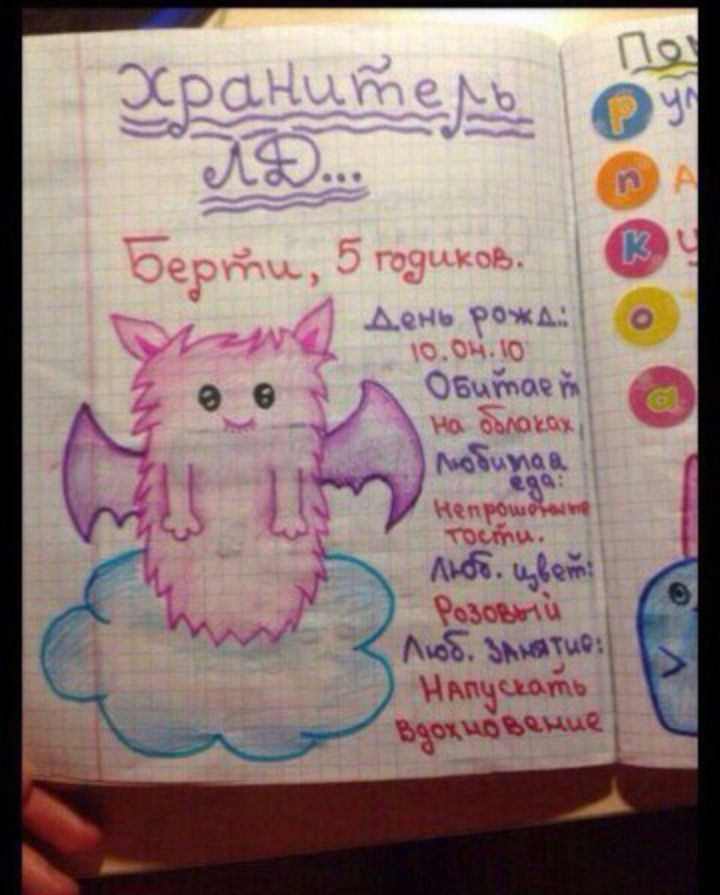 Хранитель
ЛД...
Берти, 5 годиков.
День рожд.:
10.04.10
Обитает
на облаках
Любимая
еда:
Непрошенные
тости.
Люб. цвет:
Розовый
Люб. занятие:
Напускать
вдохновение
Р
п
к
о
а